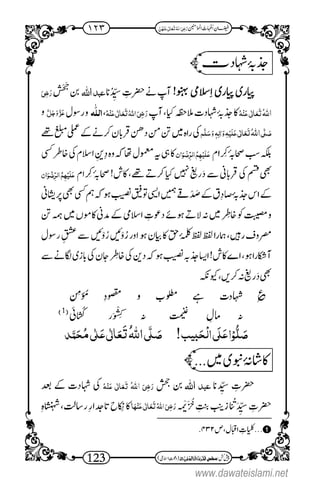 فیضانِ اُمَّہَاتُ الْمُؤمنین
۱۲۳
جذبۂ شہادت
پیاری پیاری اِسلامی بہنو! آپ نے حضرتِ سیِّدُنا عبد اللہ بن جَحْش رَضِیَ
اللہُ تَعَالٰی عَنْہُ کا جذبۂ شہادت ملاحظہ کیا، آپ رَضِیَ اللہُ تَعَالٰی عَنْہُ، اللہ عَزَّوَجَلَّ و رسول
صَلَّی اللہُ تَعَالٰی عَلَیْہِ وَاٰلِہٖ وَسَلَّمَ کی راہ میں تن من دھن قربان کرنے کے لئے عملی
بلکہ سب صحابۂ کرام عَلَیْہِمُ الرِّضْوَان کا یہی معمول تھا کہ وہ دینِ اسلام کی خاطر کسی
بھی قسم کی قربانی سے دریغ نہیں کیا کرتے تھے، کاش! صحابۂ کرام عَلَیْہِمُ الرِّضْوَان
کے اس جذبۂ صادِق کے صدقے ہمیں ایسی توفیق نصیب ہو کہ ہم کسی بھی پریشانی
و مصیبت کو خاطر میں نہ لاتے ہوئے دعوتِ اسلامی کے مدنی کاموں میں ہمہ تن
مصروف رہیں، ہمارا لفظ لفظ کلمۂ حق کا بیان ہو اور رُوئیں رُوئیں سے عشقِ رسول
آشکارا ہو، اے کاش! ایسا جذبہ نصیب ہو کہ دین کی خاطر جان کی بازی لگانے سے
بھی دریغ نہ کریں، کیونکہ
شہادت ہے مطلوب و مقصودِ مؤمن
نہ مالِ غنیمت نہ کِشْوَر کُشائی (۱)
صَلُّوْا عَلَی الْحَبِیْب! صَلَّی اللہُ تَعَالٰی عَلٰی مُحَمَّد
کاشانۂ نبوی میں...
حضرتِ سیِّدُنا عبد اللہ بن جحش رَضِیَ اللہُ تَعَالٰی عَنْہُ کی شہادت کے بعد
حضرتِ سیِّدَتُنا زینب بنتِ خُزَیْمَہ رَضِیَ اللہُ تَعَالٰی عَنْہَا کا نکاح تاجدارِ رسالت، شہنشاہِ
۱ ... کلیاتِ اقبال، ص۴۳۲.
123
www.dawateislami.net